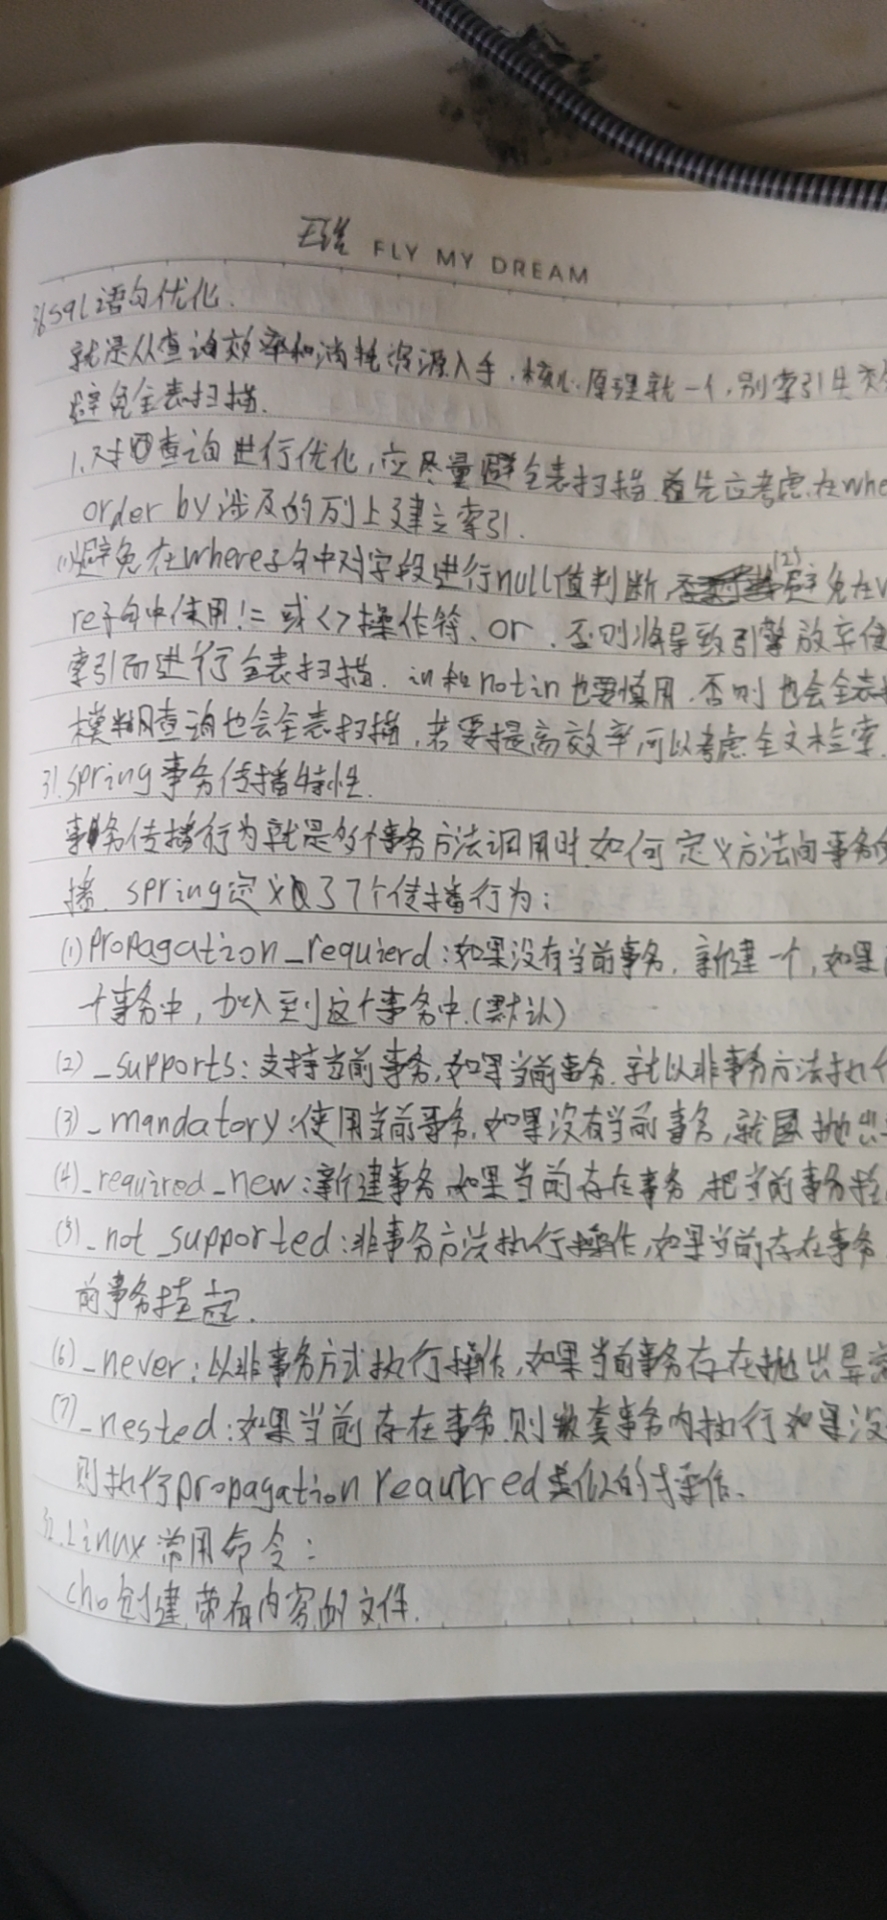 FLY MY DREAM
sql语句优化.
就是从查询效率和消耗资源入手.核心原理就一个,别索引失
避免全表扫描.
1.对查询进行优化,应尽量避全表扫描.首先应考虑在whe
order by涉及的列上建立索引.
(1)避免在where子句中对字段进行null值判断, (2)避免在w
re子句中使用!=或<>操作符、or.否则将导致引擎放弃使
索引而进行全表扫描. in和notin也要慎用.否则也会全表
模糊查询也会全表扫描,若要提高效率,可以考虑全文检索.
31.spring事务传播特性.
事务传播行为就是多个事务方法调用时,如何定义方法间事务的
播. spring定义了7个传播行为:
(1)Propagation_requierd:如果没有当前事务,新建一个,如果
个事务中,加入到这个事务中.(默认)
(2)_supports:支持当前事务,如果当前事务.就以非事务方法执行
(3)_mandatory:使用当前事务,如果没有当前事务,就抛出
(4)_required_new:新建事务,如果当前存在事务,把当前事务挂
(5)_not_supported:非事务方法执行操作,如果当前存在事务
前事务挂起.
(6)_never:以非事务方式执行操作,如果当前事务存在抛出异常
(7)_nested:如果当前存在事务,则嵌套事务内执行,如果没
则执行propagation reautred类似的操作.
32.Linux常用命令:
cho创建带有内容的文件.